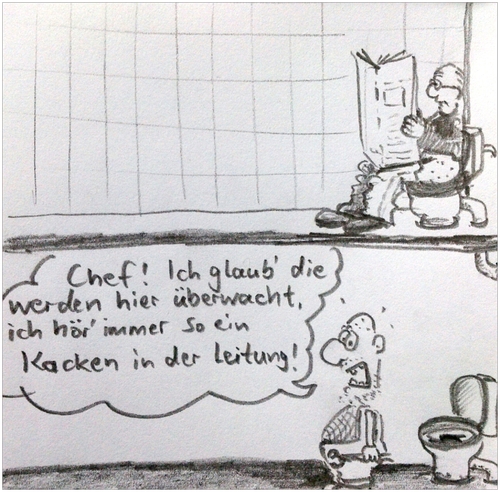 Chef! Ich glaub' die
werden hier überwacht,
ich hör' immer so ein
Kacken in der Leitung!